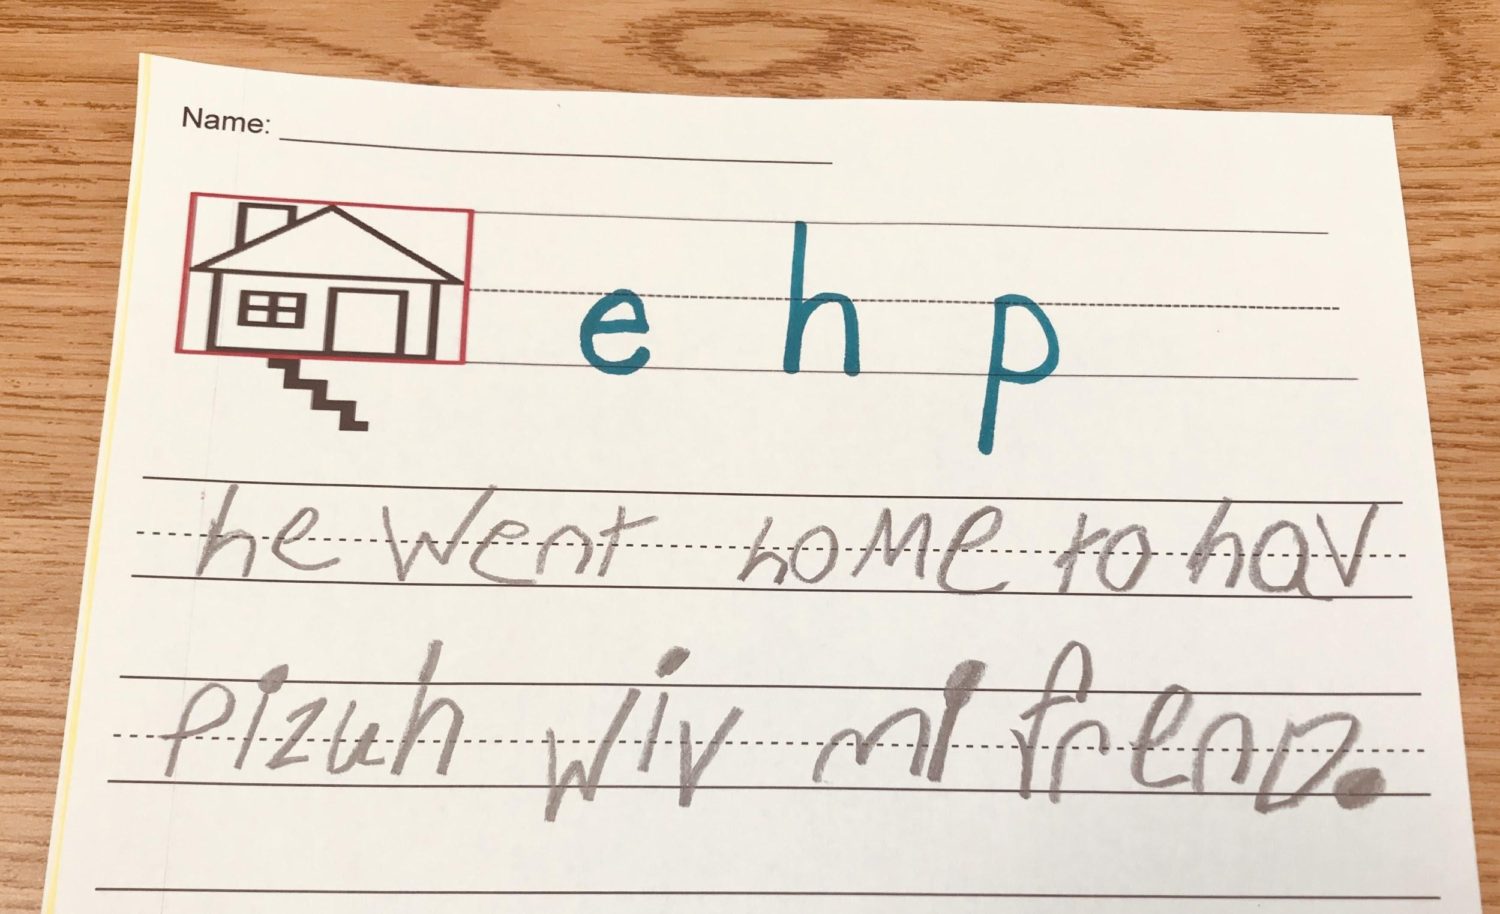 Name:
e h p
he went home to hav
pizuh wiv mi frend.